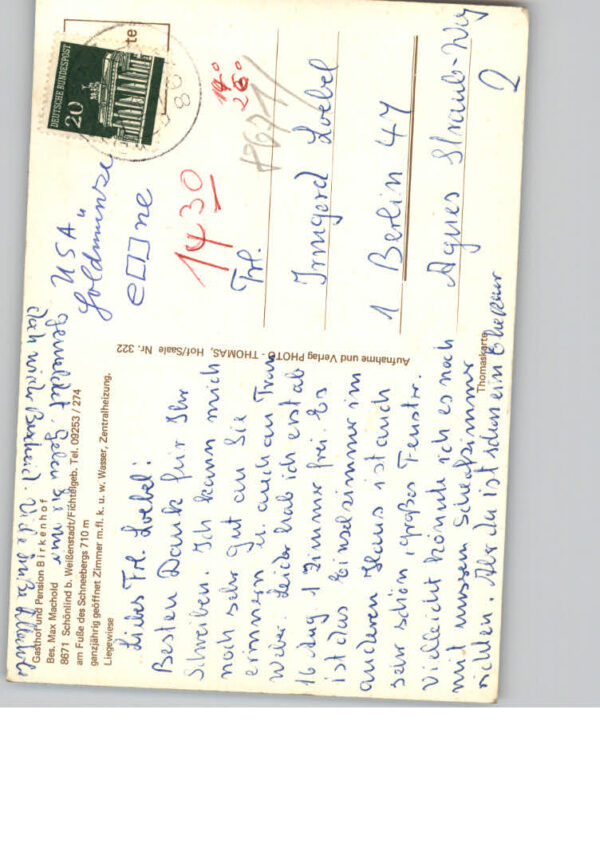 Gasthof und Pension Birkenhof
Bes. Max Machold
8671 Schönlind b. Weißenstadt/Fichtelgeb. Tel. 09253 / 274
am Fuße des Schneebergs 710 m
ganzjährig geöffnet Zimmer m. fl. k. u. w. Wasser, Zentralheizung.
Liegewiese
Liebes Frl. Loebel!
Besten Dank für Ihr
Schreiben. Ich kann mich
noch sehr gut an Sie
erinnern u. auch an Frau
Weber. Leider hab ich erst ab
16 Aug 1 Zimmer frei. Es
ist das Einzelzimmer im
anderen Haus ist auch
sehr schön, großes Fenster.
Vielleicht könnte ich es noch
mit unserem Schlafzimmer
richten. Aber da ist schon ein Ehepaar
gemeldet. Geben Sie mir
doch wieder Bescheid.
Aufnahme und Verlag PHOTO - THOMAS, Hof/Saale Nr. 322
Thomaskarte
DEUTSCHE BUNDESPOST
20
te
USA
Goldmünze
ne
1430
8671
Frl.
Irmgard Loebel
1 Berlin 47
Agnes Straub-Weg
2